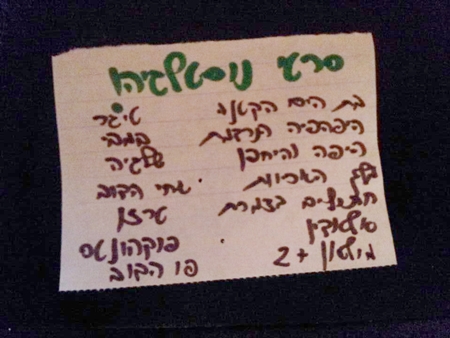 סרטי נוסטלגיה!
בת הים הקטנה
היפהפיה הנרדמת
היפה והיחפן
מלך האריות
חתולים בצמרת
אלאדין
מולאן + 2
טיגר
במבי
שלגיה
אחי הדוב
טרזן
פוקהונטס
פו הדוב